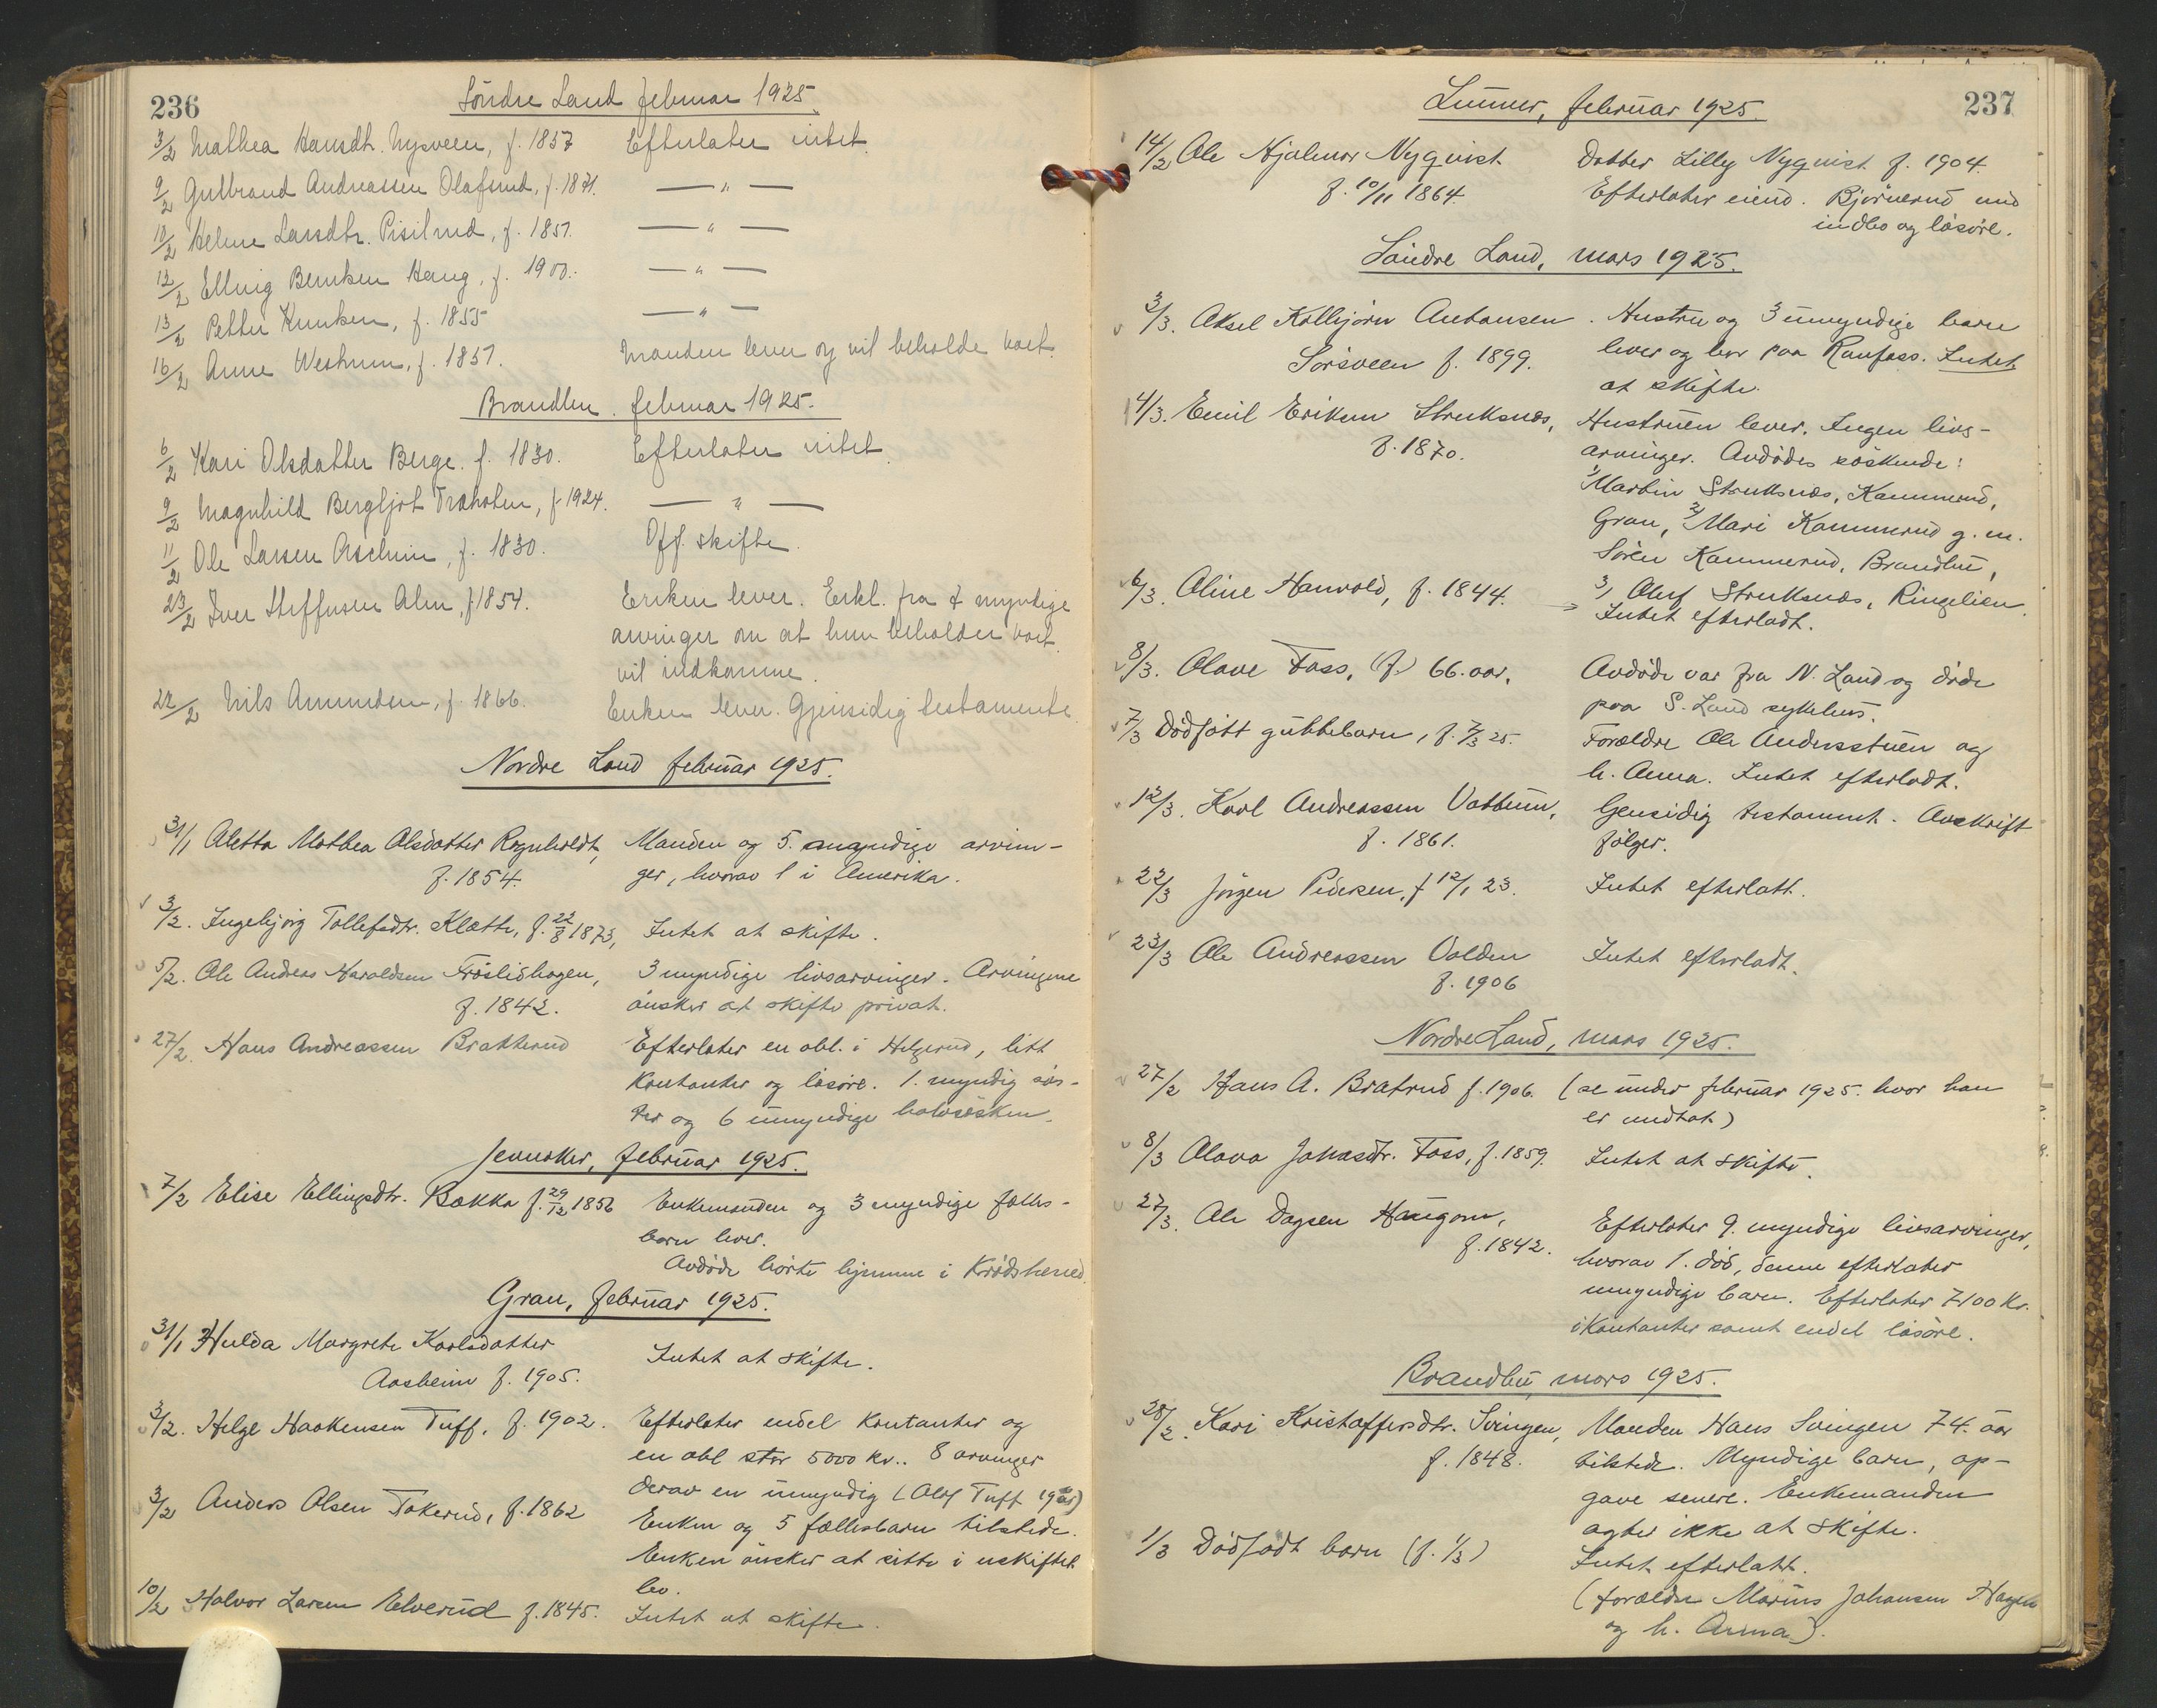 236
Söndre Land februar 1925.
3/2 Mathea Hansdt. Nysveen, f. 1857 Efterlater intet.
9/2 Gulbrand Andreassen Olafsrud, f. 1871. — " —
10/2 Helene Larsdtr. Pisilrud, f. 1851. — " —
12/2 Elling Berntsen Haug, f. 1900. — " —
13/2 Petter Knutsen, f. 1855 — " —
16/2 Anne Westrum, f. 1851. Manden lever og vil beholde boet.
Brandbu. februar 1925.
6/2 Kari Olsdatter Berge. f. 1830. Efterlater intet.
9/2 Magnhild Bergljot Træholen, f. 1924. — " —
11/2 Ole Larsen Aschim, f. 1830. Off. skifte.
23/2 Iver Steffensen Alm, f. 1854. Enken lever. Erkl. fra 8 myndige
arvinger om at hun beholder boet.
vil indkomme.
22/2 Nils Amundsen, f. 1866. Enken lever. Gjensidig testamente.
Nordre Land februar 1925.
31/1 Aletta Mathea Olsdatter Rognholdt, Manden og 5. myndige arvin-
f. 1854. ger, hvorav 1 i Amerika.
3/2. Ingebjörg Tollefsdtr. Klætte, f. 22/8 1873, Intet at skifte.
5/2. Ole Anders Haraldsen Fröslidhagen, 3 myndige livsarvinger. Arvingene
f. 1842. önsker at skifte privat.
27/2. Hans Andreassen Bratterud Efterlater en obl. i Helgerud, litt
kontanter og lösöre. 1. myndig sös-
ter og 6 umyndige halvsösken.
Jevnaker, februar 1925.
7/2 Elise Ellingsdtr. Bakka f. 29/12 1856 Enkemanden og 3 myndige fælles-
barn lever.
Avdöde hörte hjemme i Krödsherred.
Gran, februar 1925.
31/1 Hulda Margrete Karlsdatter Intet at skifte.
Aasheim f. 1905.
3/2. Helge Haakensen Tuff, f. 1902. Efterlater endel kontanter og
en obl stor 5000 kr.. 8 arvinger
derav en umyndig (Olaf Tuff 19 år)
3/2 Anders Olsen Takerud, f. 1862 Enken og 5 fællesbarn tilstede.
Enken önsker at sitte i uskiftet
bo.
10/2 Halvor Larsen Elverud f. 1845. Intet at skifte.
237
Lunner, februar 1925.
14/2 Ole Hjalmar Nyquist Datter Lilly Nyquist f. 1904.
f. 10/11 1864. Efterlater eiend. Björnerud med
indbo og lösöre.
Söndre Land, mars 1925.
3/3. Aksel Kolbjörn Antonsen Hustru og 3 umyndige barn
Sörsveen f. 1899. lever og bor paa Raufoss. Intet
at skifte.
4/3. Emil Eriksen Struksnæs, Hustruen lever. Ingen livs-
f. 1870. arvinger. Avdödes söskende:
1) Martin Struksnæs, Kammerud,
Gran, 2) Mari Kammerud g. m.
Sören Kammerud, Brandbu,
3) Oluf Struksnæs, Ringelien.
6/3. Oline Hanvold, f. 1844. Intet efterladt.
8/3. Olave Foss, (f.) 66. aar. Avdöde var fra N. Land og döde
paa S. Land sykehus.
7/3 Dödfött guttebarn, f. 7/3 25. Forældre Ole Andersstuen og
h. Anna. Intet efterladt.
12/3. Karl Andreassen Vattum, Gensidig testament. Avskrift
f. 1861. fölger.
22/3 Jörgen Pedersen, f 12/1 23. Intet efterlatt.
23/3 Ole Andreassen Volden Intet efterladt.
f. 1906
Nordre Land, mars 1925.
27/2 Hans A. Bratrud f. 1906. (se under februar 1925. hvor han
er medtat)
8/3 Olava Johasdtr. Foss, f. 1859. Intet at skifte.
27/3. Ole Dagsen Haugom, Efterlater 9. myndige livsarvinger,
f. 1842. hvorav 1. död, denne efterlater
umyndige barn. Efterlater 7100 Kr.
i Kontanter samt endel lösöre.
Brandbu, mars 1925.
28/2. Kari Kristoffersdtr. Svingen, Manden Hans Svingen 74. aar
f. 1848. tilstede. Myndige barn, op-
gave senere. Enkemanden
agter ikke at skifte.
1/3 Dödfödt barn (f. 1/3) Intet efterlatt.
(forældre Marius Johansen Hagen
og h. Anna).